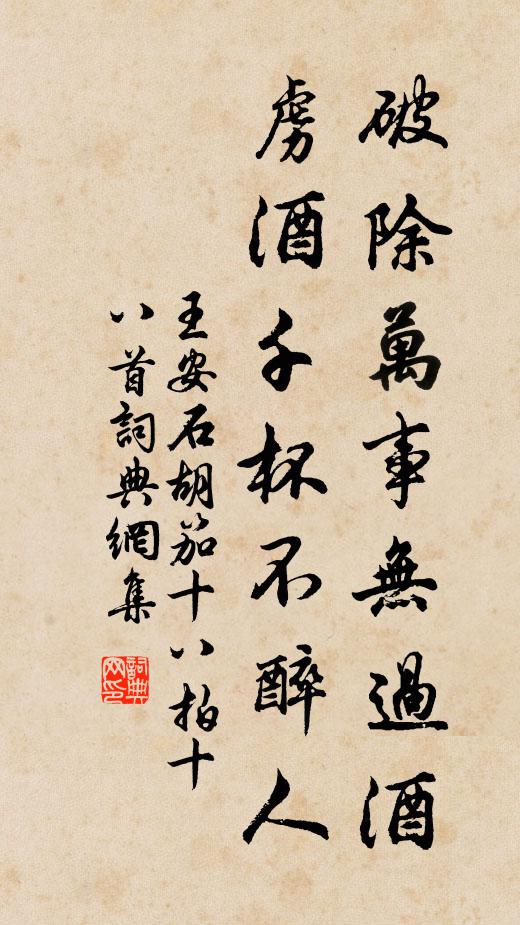 破除萬事無過酒
虜酒千杯不醉人
王安石胡笳十八拍十
八首詞典網集
詞典网印